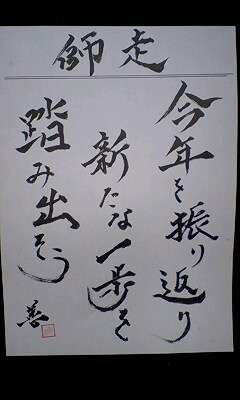 師走
今年を振り返り
新たな一歩を
踏み出そう
善